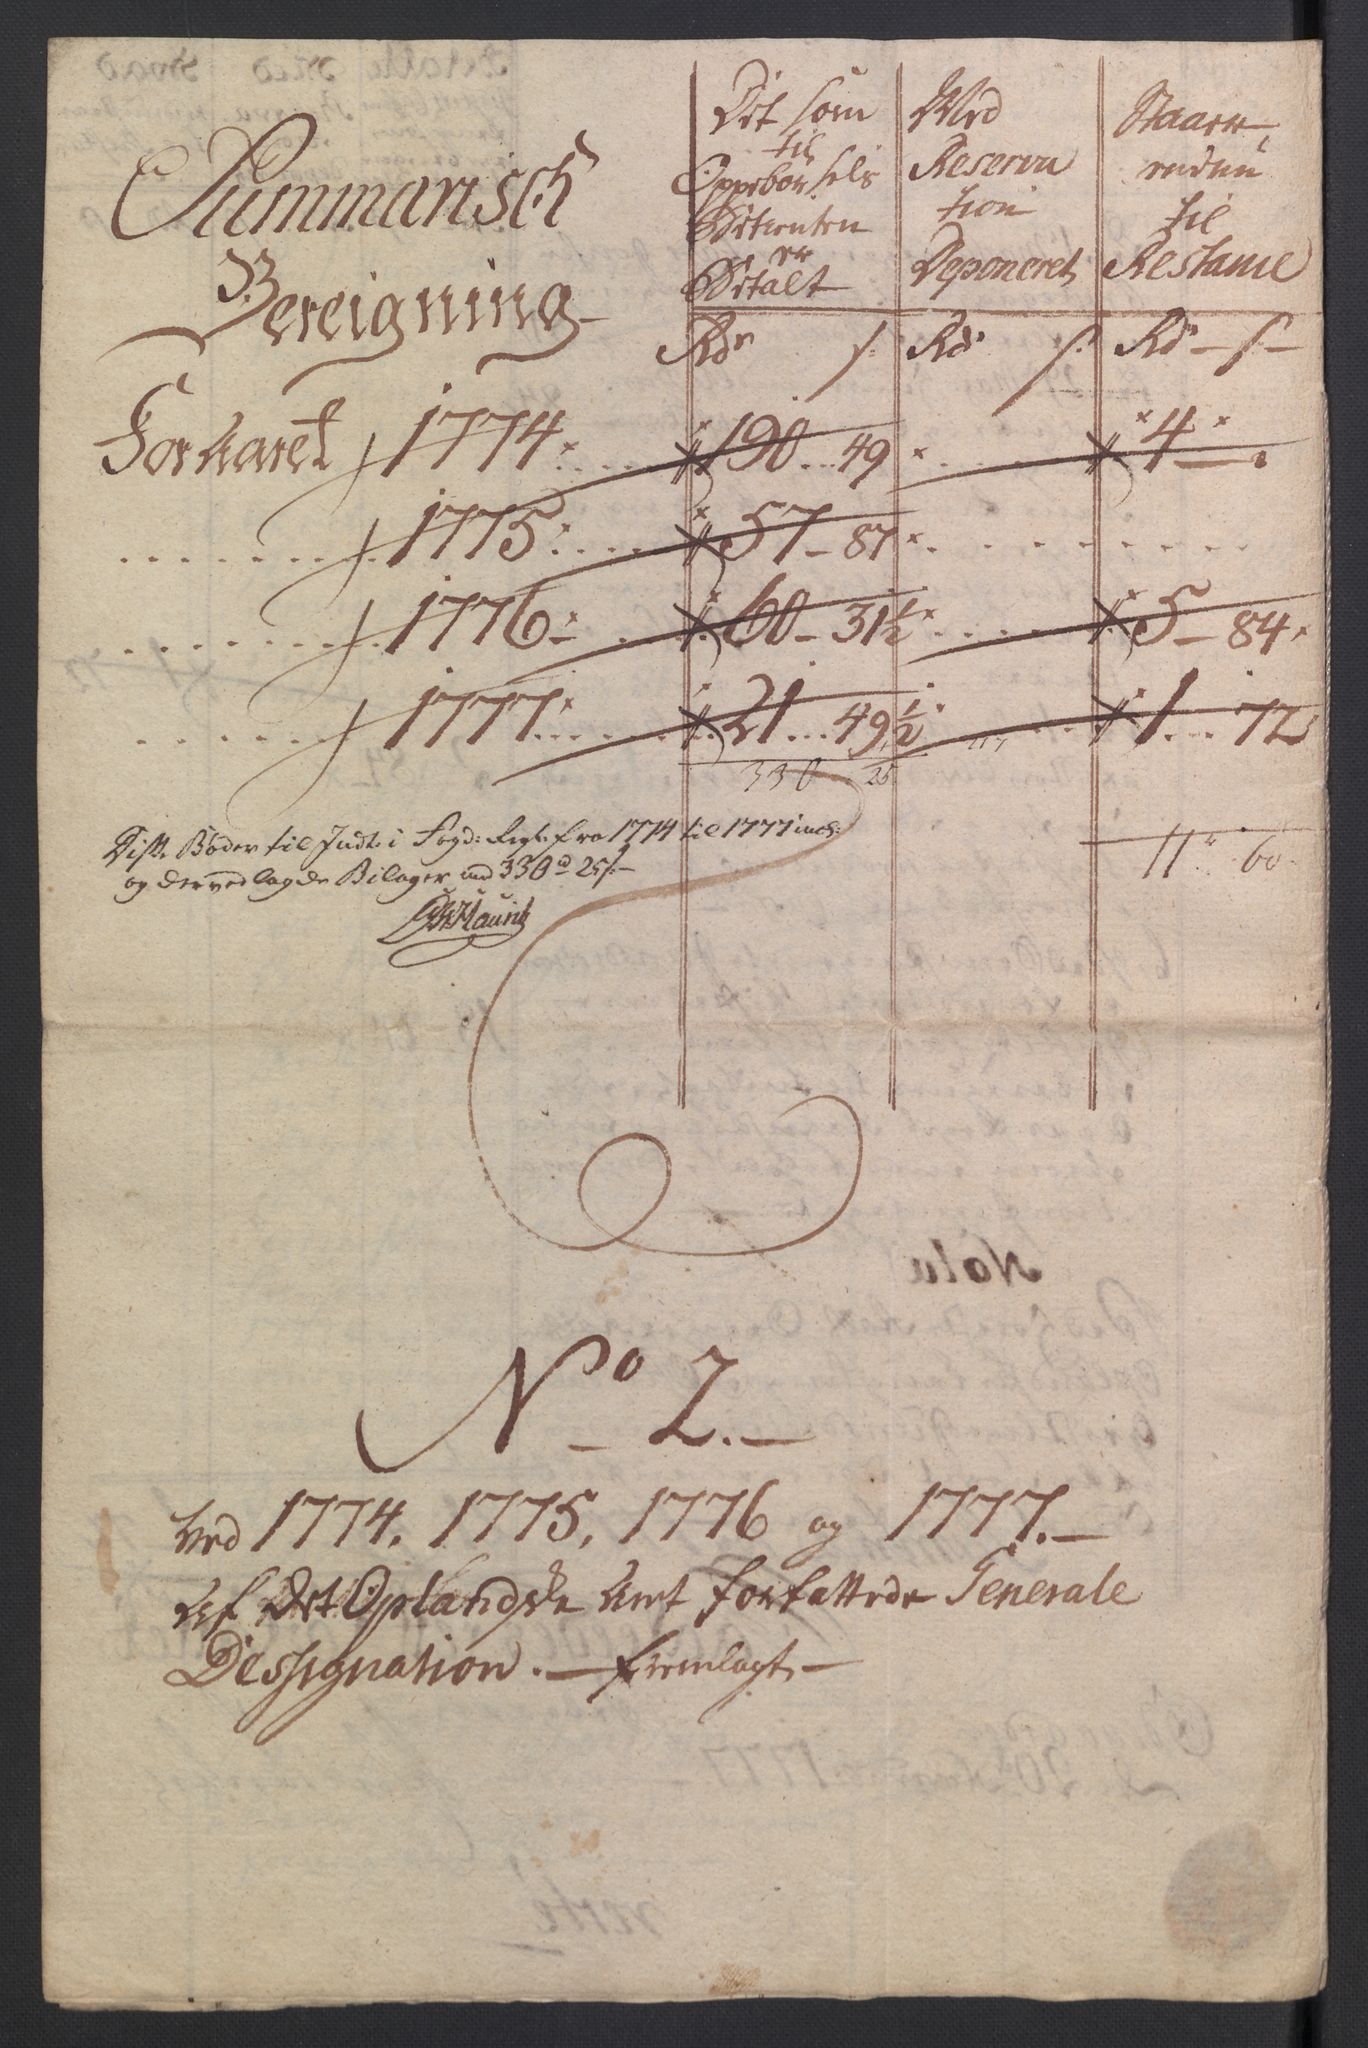 Summarisch
Bereigning
Det som
til
Oppebørsels
Betienten
er
Betalt
Med
Reserva
tion
Deponeret
Staar
endnu
til
Restance
Rdr s:
Rdr s:
Rdr s:
For Aaret 1774 190 49 4
1775 57 87
1776 60 31½ 5 84
1777 21 49½ 1 72
330 25
11 60
Diße Bøder til Indt: i Fogd: Regn: fra 1774 til 1777 incl:
og derved lagde Bilager med 330 rd 25 s
No 2.
Ved 1774, 1775, 1776 og 1777.
af Det Oplandske Amt forfattede Generale
Dessignation. fremlagt